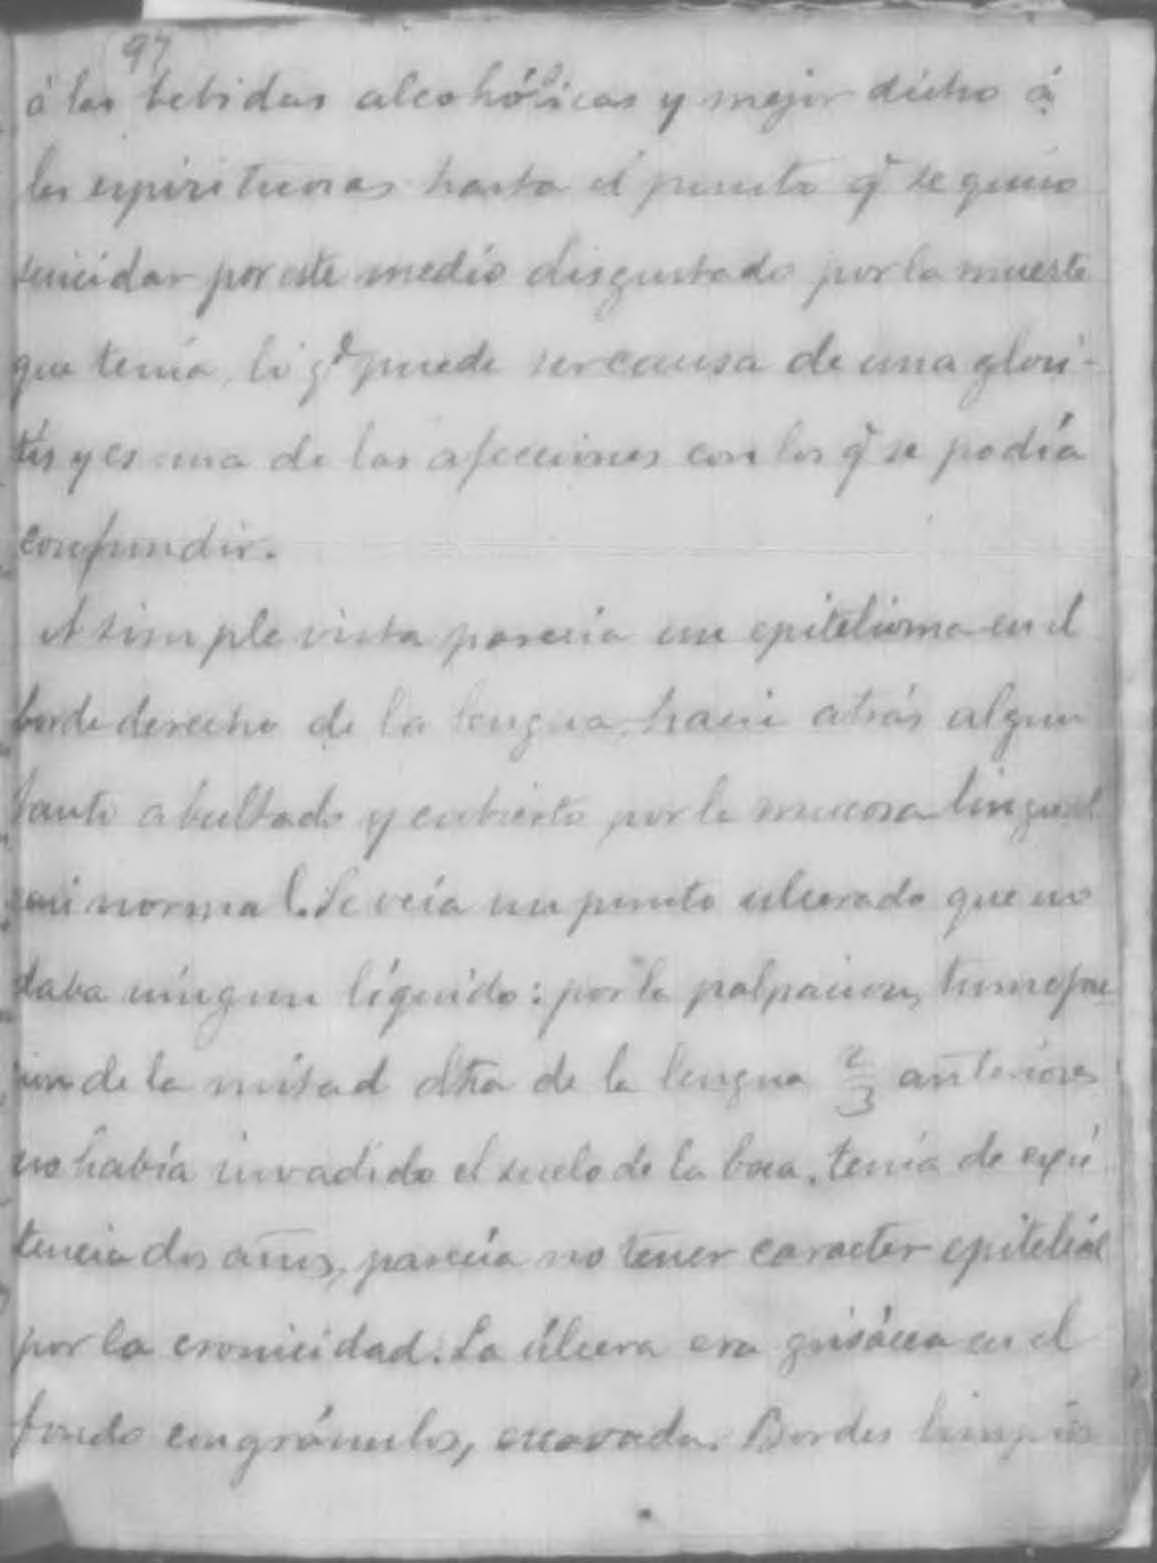 97
á las bebidas alcohólicas y mejor dicho á
las espirituosas hasta el punto q̃ se quiso
suicidar por este medio disgustado por la muerte
que tenía, lo q.e puede ser causa de una glosi-
tis y es una de las afecciones con las q̃ se podía
confundir.
A simple vista parecía un epitelioma en el
borde derecho de la lengua, hacia atrás algun
tanto abultado y cubierto por la mucosa lingual
casi normal. Se veía un punto ulcerado que no
daba níngun líquido: por la palpacion, tumefac-
cion de la mitad dtra de la lengua 2/3 anteriores
no había invadido el suelo de la boca, tenía de exis
tencia dos años, parecía no tener caracter epitelial
por la cronicidad. La úlcera era grisácea en el
fondo con gránulos, excavada. Bordes limpios